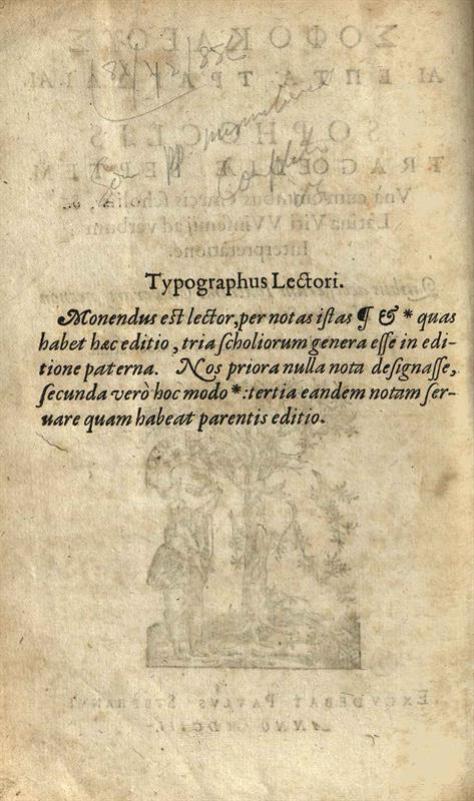 Typographus Lectori.
Monendus est lector, per notas istas ¶ & * quas
habet hæc editio, tria scholiorum genera esse in edi-
tione paterna. Nos priora nulla nota designasse,
secunda verò hoc modo *: tertia eandem notam ser-
uare quam habeat parentis editio.